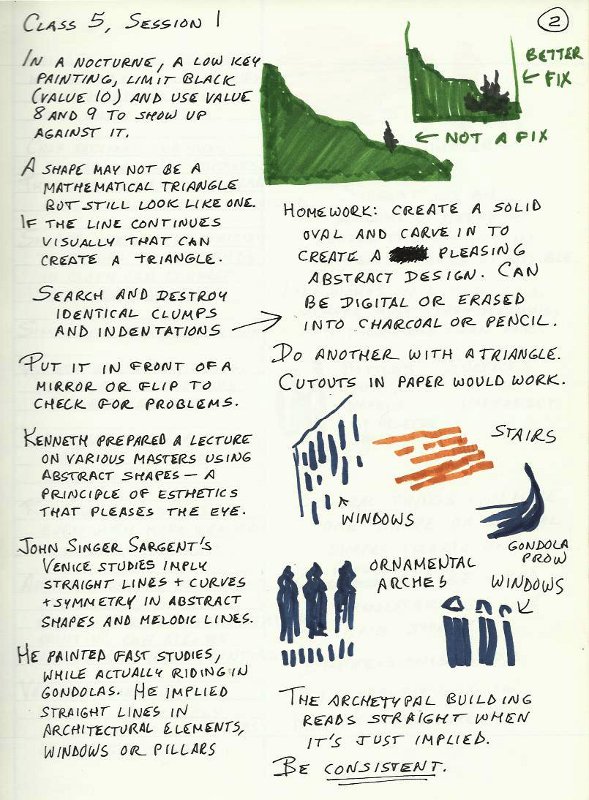 Class 5, Session 1
2
In a nocturne, a low key
painting, limit black
(value 10) and use value
8 and 9 to show up
against it.
A shape may not be a
mathematical triangle
but still look like one.
If the line continues
visually that can
create a triangle.
Search and destroy
identical clumps
and indentations
Put it in front of a
mirror or flip to
check for problems.
Kenneth prepared a lecture
on various masters using
abstract shapes — a
principle of esthetics
that pleases the eye.
John Singer Sargent's
Venice studies imply
straight lines + curves
+ symmetry in abstract
shapes and melodic lines.
He painted fast studies,
while actually riding in
gondolas. He implied
straight lines in
architectural elements,
windows or pillars
Better
Fix
Not a fix
Homework: Create a solid
oval and carve in to
create a pleasing
abstract design. Can
be digital or erased
into charcoal or pencil.
Do another with a triangle.
Cutouts in paper would work.
Stairs
Windows
Gondola
prow
Ornamental
arches
Windows
The archetypal building
reads straight when
it's just implied.
Be consistent.